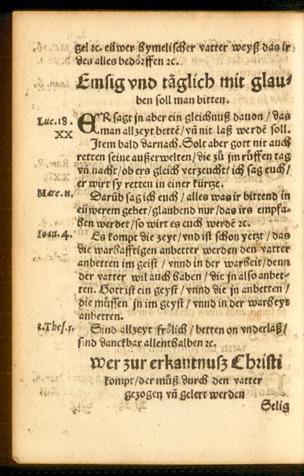 gel ⁊c. eüwer hymelischer vatter weyß das ir
des alles bedörffen ⁊c.
Emsig vnd täglich mit glau-
ben soll man bitten.
Luc. 18.
XX
ER sagt jn aber ein gleichnuß dauon / das
man allzeyt bettē / vn̄ nit laß werdē soll.
Item bald darnach. Solt aber gott nit auch
retten seine außerwelten / die zů jm růffen tag
vn̄ nacht / ob ers gleich verzeucht: ich sag euch /
er wirt sy retten in einer kürtze.
Marc. 11.
Darüb sag ich euch / alles was ir bittend in
eüwerem gebet / glaubend nur / das irs empfa-
hen werdet / so wirt es euch werdē ⁊c.
Joan. 4.
Es kompt die zeyt / vnd ist schon yetzt / das
die warhafftigen anbetter werden den vatter
anbetten im geist / vnnd in der warheit / denn
der vatter wil auch haben / die jn also anbet-
ten. Gott ist ein geyst / vnnd die jn anbetten /
die müssen jn im geyst / vnnd in der warheyt
anbetten.
1. Thes. 5.
Sind allzeyt frölich / betten on vnderlaß /
sind danckbar allenthalben ⁊c.
Wer zur erkantnuß Christi
kompt / der můß durch den vatter
gezogen vn̄ gelert werden
Selig